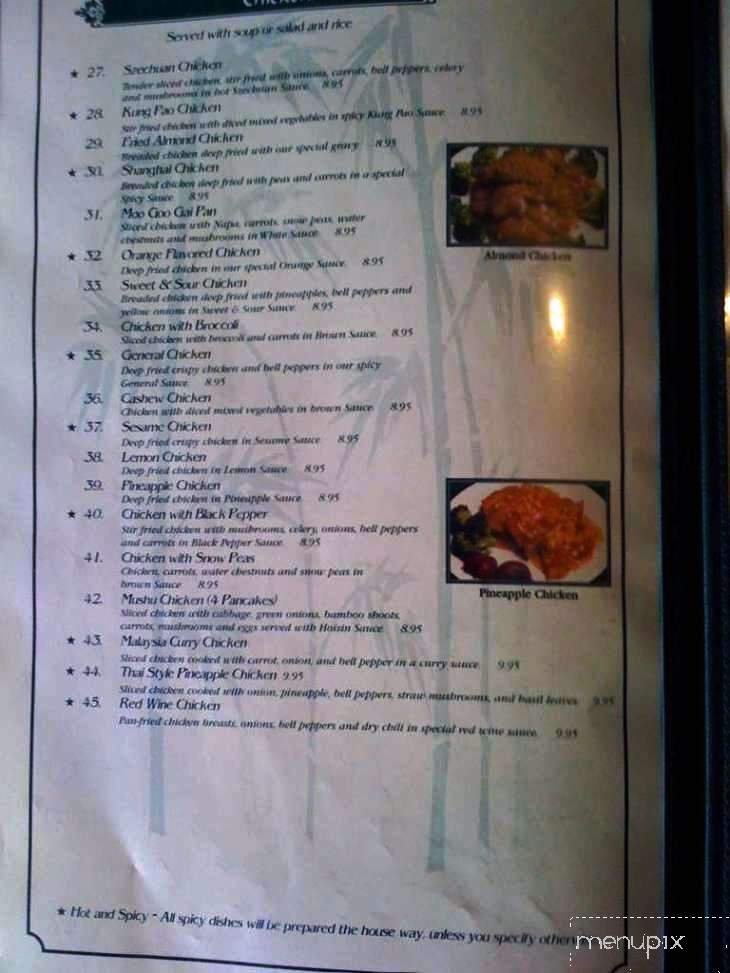 Served with soup or salad and rice
★ 27. Szechuan Chicken
Tender sliced chicken, stir fried with onions, carrots, bell peppers, celery
and mushrooms in hot Szechuan Sauce. 8.95
★ 28. Kung Pao Chicken
Stir fried chicken with diced mixed vegetables in spicy Kung Pao Sauce. 8.95
29. Fried Almond Chicken
Breaded chicken deep fried with our special gravy. 8.95
★ 30. Shanghai Chicken
Breaded chicken deep fried with peas and carrots in a special
Spicy Sauce. 8.95
31. Moo Goo Gai Pan
Sliced chicken with Napa, carrots, snow peas, water
chestnuts and mushrooms in White Sauce. 8.95
★ 32. Orange Flavored Chicken
Deep fried chicken in our special Orange Sauce. 8.95
33. Sweet & Sour Chicken
Breaded chicken deep fried with pineapples, bell peppers and
yellow onions in Sweet & Sour Sauce. 8.95
34. Chicken with Broccoli
Sliced chicken with broccoli and carrots in Brown Sauce. 8.95
★ 35. General Chicken
Deep fried crispy chicken and bell peppers in our spicy
General Sauce. 8.95
36. Cashew Chicken
Chicken with diced mixed vegetables in brown Sauce. 8.95
★ 37. Sesame Chicken
Deep fried crispy chicken in Sesame Sauce. 8.95
38. Lemon Chicken
Deep fried chicken in Lemon Sauce. 8.95
39. Pineapple Chicken
Deep fried chicken in Pineapple Sauce. 8.95
★ 40. Chicken with Black Pepper
Stir fried chicken with mushrooms, celery, onions, bell peppers
and carrots in Black Pepper Sauce. 8.95
41. Chicken with Snow Peas
Chicken, carrots, water chestnuts and snow peas in
brown Sauce. 8.95
42. Mushu Chicken (4 Pancakes)
Sliced chicken with cabbage, green onions, bamboo shoots,
carrots, mushrooms and eggs served with Hoisin Sauce. 8.95
★ 43. Malaysia Curry Chicken
Sliced chicken cooked with carrot, onion, and bell pepper in a curry sauce. 9.95
★ 44. Thai Style Pineapple Chicken 9.95
Sliced chicken cooked with onion, pineapple, bell peppers, straw mushrooms, and basil leaves. 9.95
★ 45. Red Wine Chicken
Pan-fried chicken breasts, onions, bell peppers and dry chili in special red wine sauce. 9.95
Almond Chicken
Pineapple Chicken
★ Hot and Spicy - All spicy dishes will be prepared the house way, unless you specify
menupix